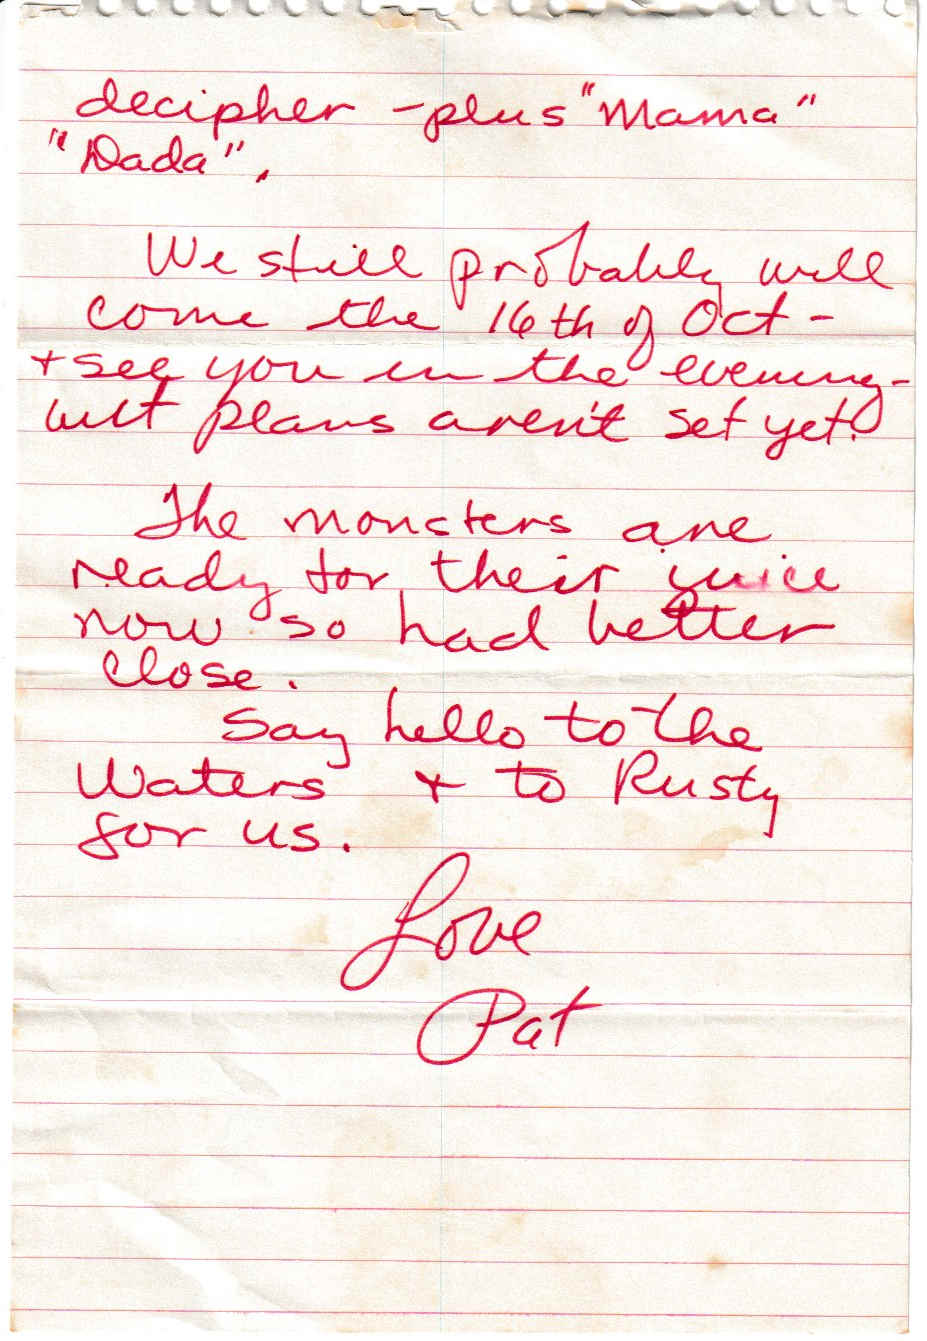 decipher - plus "Mama"
"Dada".
We still probably will
come the 16th of Oct -
+ see you in the evening -
but plans aren't set yet.
The monsters are
ready for their juice
now so had better
close.
Say hello to the
Waters + to Rusty
for us.
Love
Pat